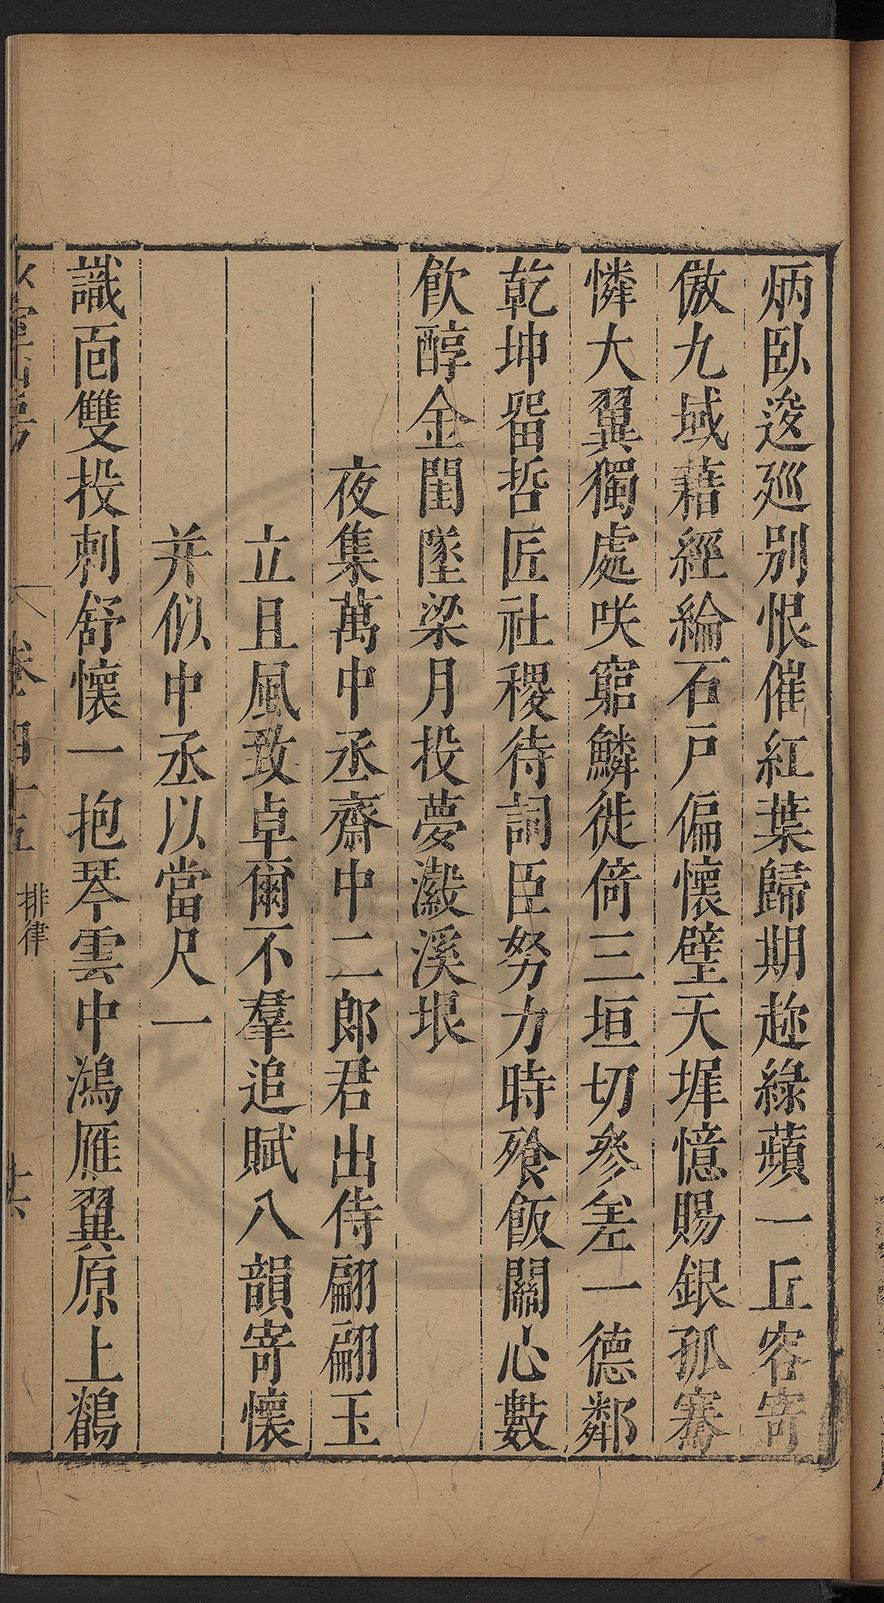 炳臥逡廵别恨催紅葉歸期趂綠蘋一丘容寄
傲九域藉經綸石戸偏懷璧天墀憶賜銀孤騫
憐大翼獨處咲窮鱗徙倚三垣切參差一德鄰
乾坤畱哲匠社稷待詞臣努力時飱飯關心數
飲醇金閨墜梁月投夢瀫溪垠
夜集萬中丞齋中二郎君出侍翩翩玉
立且風致卓爾不羣追賦八韻寄懷
并似中丞以當尺一
識面雙投刺舒懷一抱琴雲中鴻雁翼原上鶺
卷四十五 排律